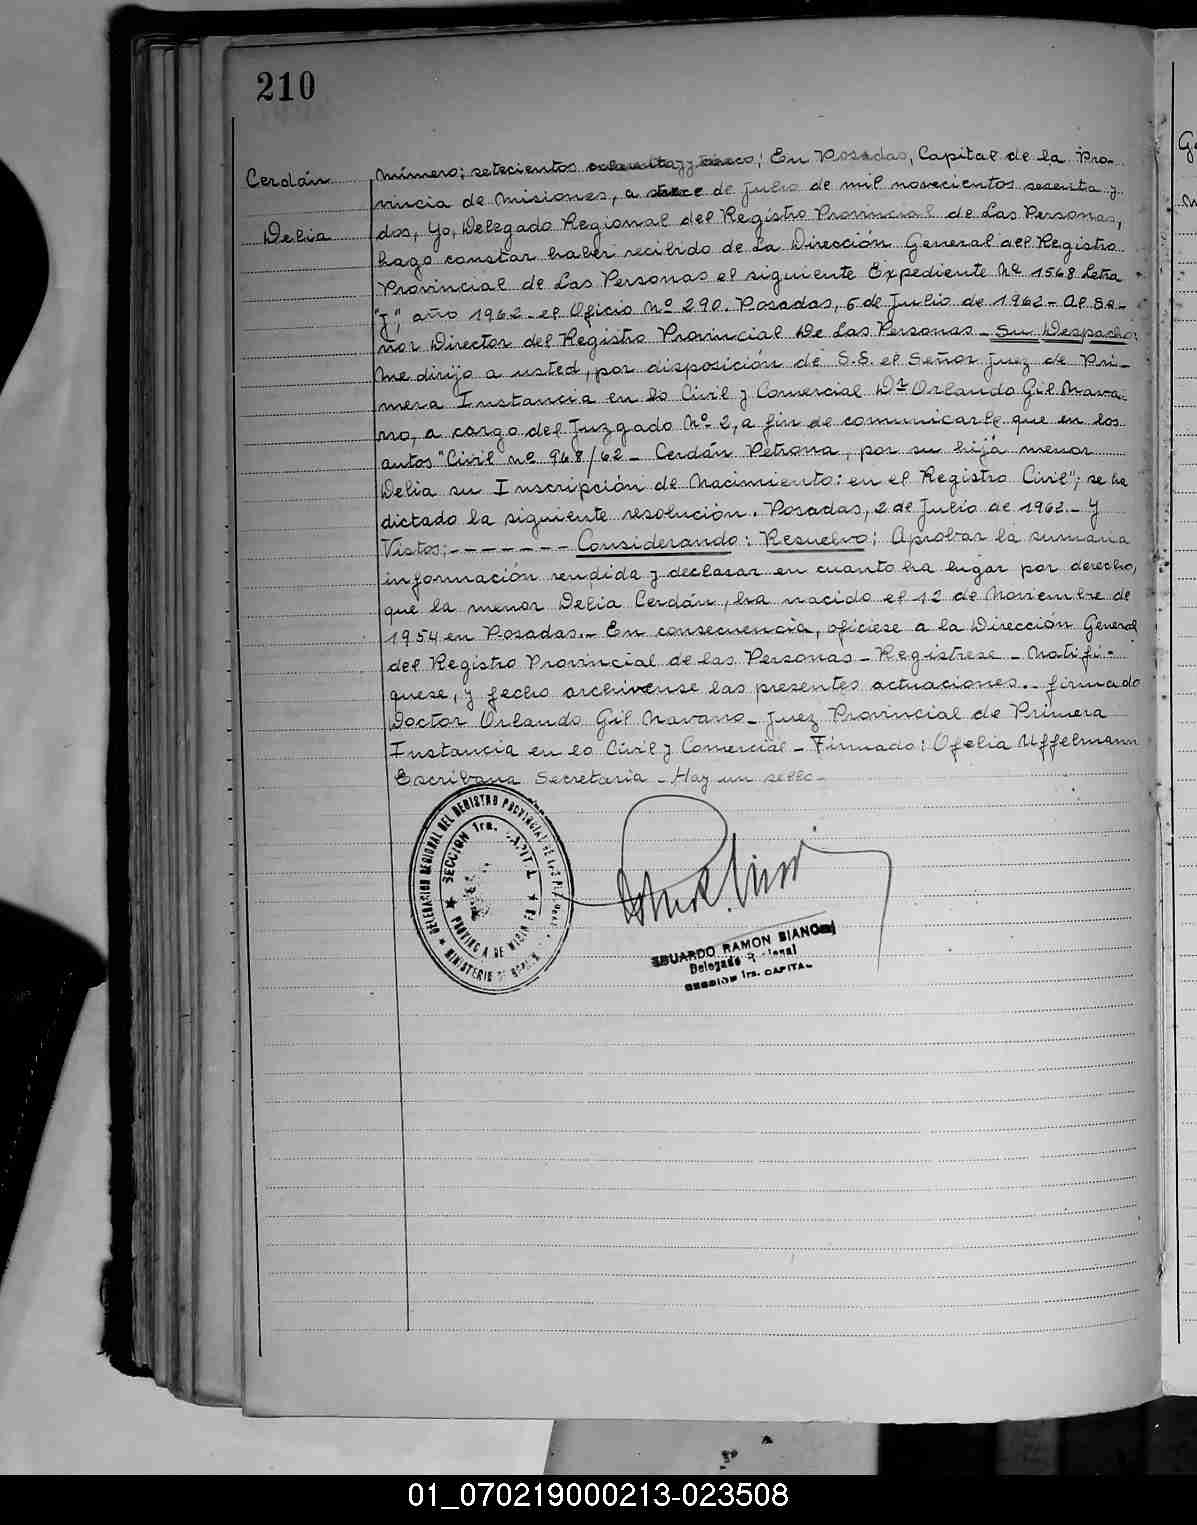 210
Cerdán
Delia
Número; setecientos ; En Posadas, Capital de la Pro-
vincia de Misiones, a trece de Julio de mil novecientos sesenta y
dos, Yo, Delegado Regional del Registro Provincial de Las Personas,
hago constar haber recibido de La Dirección General del Registro
Provincial de Las Personas el siguiente Expediente Nº 1568 Letra
"J", año 1962 - el Oficio Nº 290. Posadas, 5 de Julio de 1962 - Al Se-
ñor Director del Registro Provincial De Las Personas - Su Despacho:
Me dirijo a usted, por disposición de S.S. el Señor Juez de Pri-
mera Instancia en lo Civil y Comercial Dr Orlando Gil Nava-
rro, a cargo del Juzgado Nº 2, a fin de comunicarle que en los
autos "Civil nº 968/62 - Cerdán Petrona, por su hija menor
Delia su Inscripción de Nacimiento: en el Registro Civil"; se ha
dictado la siguiente resolución. Posadas, 2 de Julio de 1962. - Y
Vistos: - - - - - - - Considerando: Resuelvo: Aprobar la sumaria
información rendida y declarar en cuanto ha lugar por derecho,
que la menor Delia Cerdán, ha nacido el 12 de Noviembre de
1954 en Posadas. - En consecuencia, ofíciese a la Dirección General
del Registro Provincial de las Personas - Registrese - Notifí-
quese, y fecho archívense las presentes actuaciones. - firmado
Doctor Orlando Gil Navarro - Juez Provincial de Primera
Instancia en lo Civil y Comercial - Firmado: Ofelia Uffelmann
Escribana Secretaria - Hay un sello -
DELEGACION REGIONAL DEL REGISTRO PROVINCIAL DE LAS PERSONAS
SECCION 1ra. CAPITAL
PROVINCIA DE MISIONES
MINISTERIO DE
EDUARDO RAMON BIANCHI
Delegado Regional
SECCION 1ra. CAPITAL
01_070219000213-023508